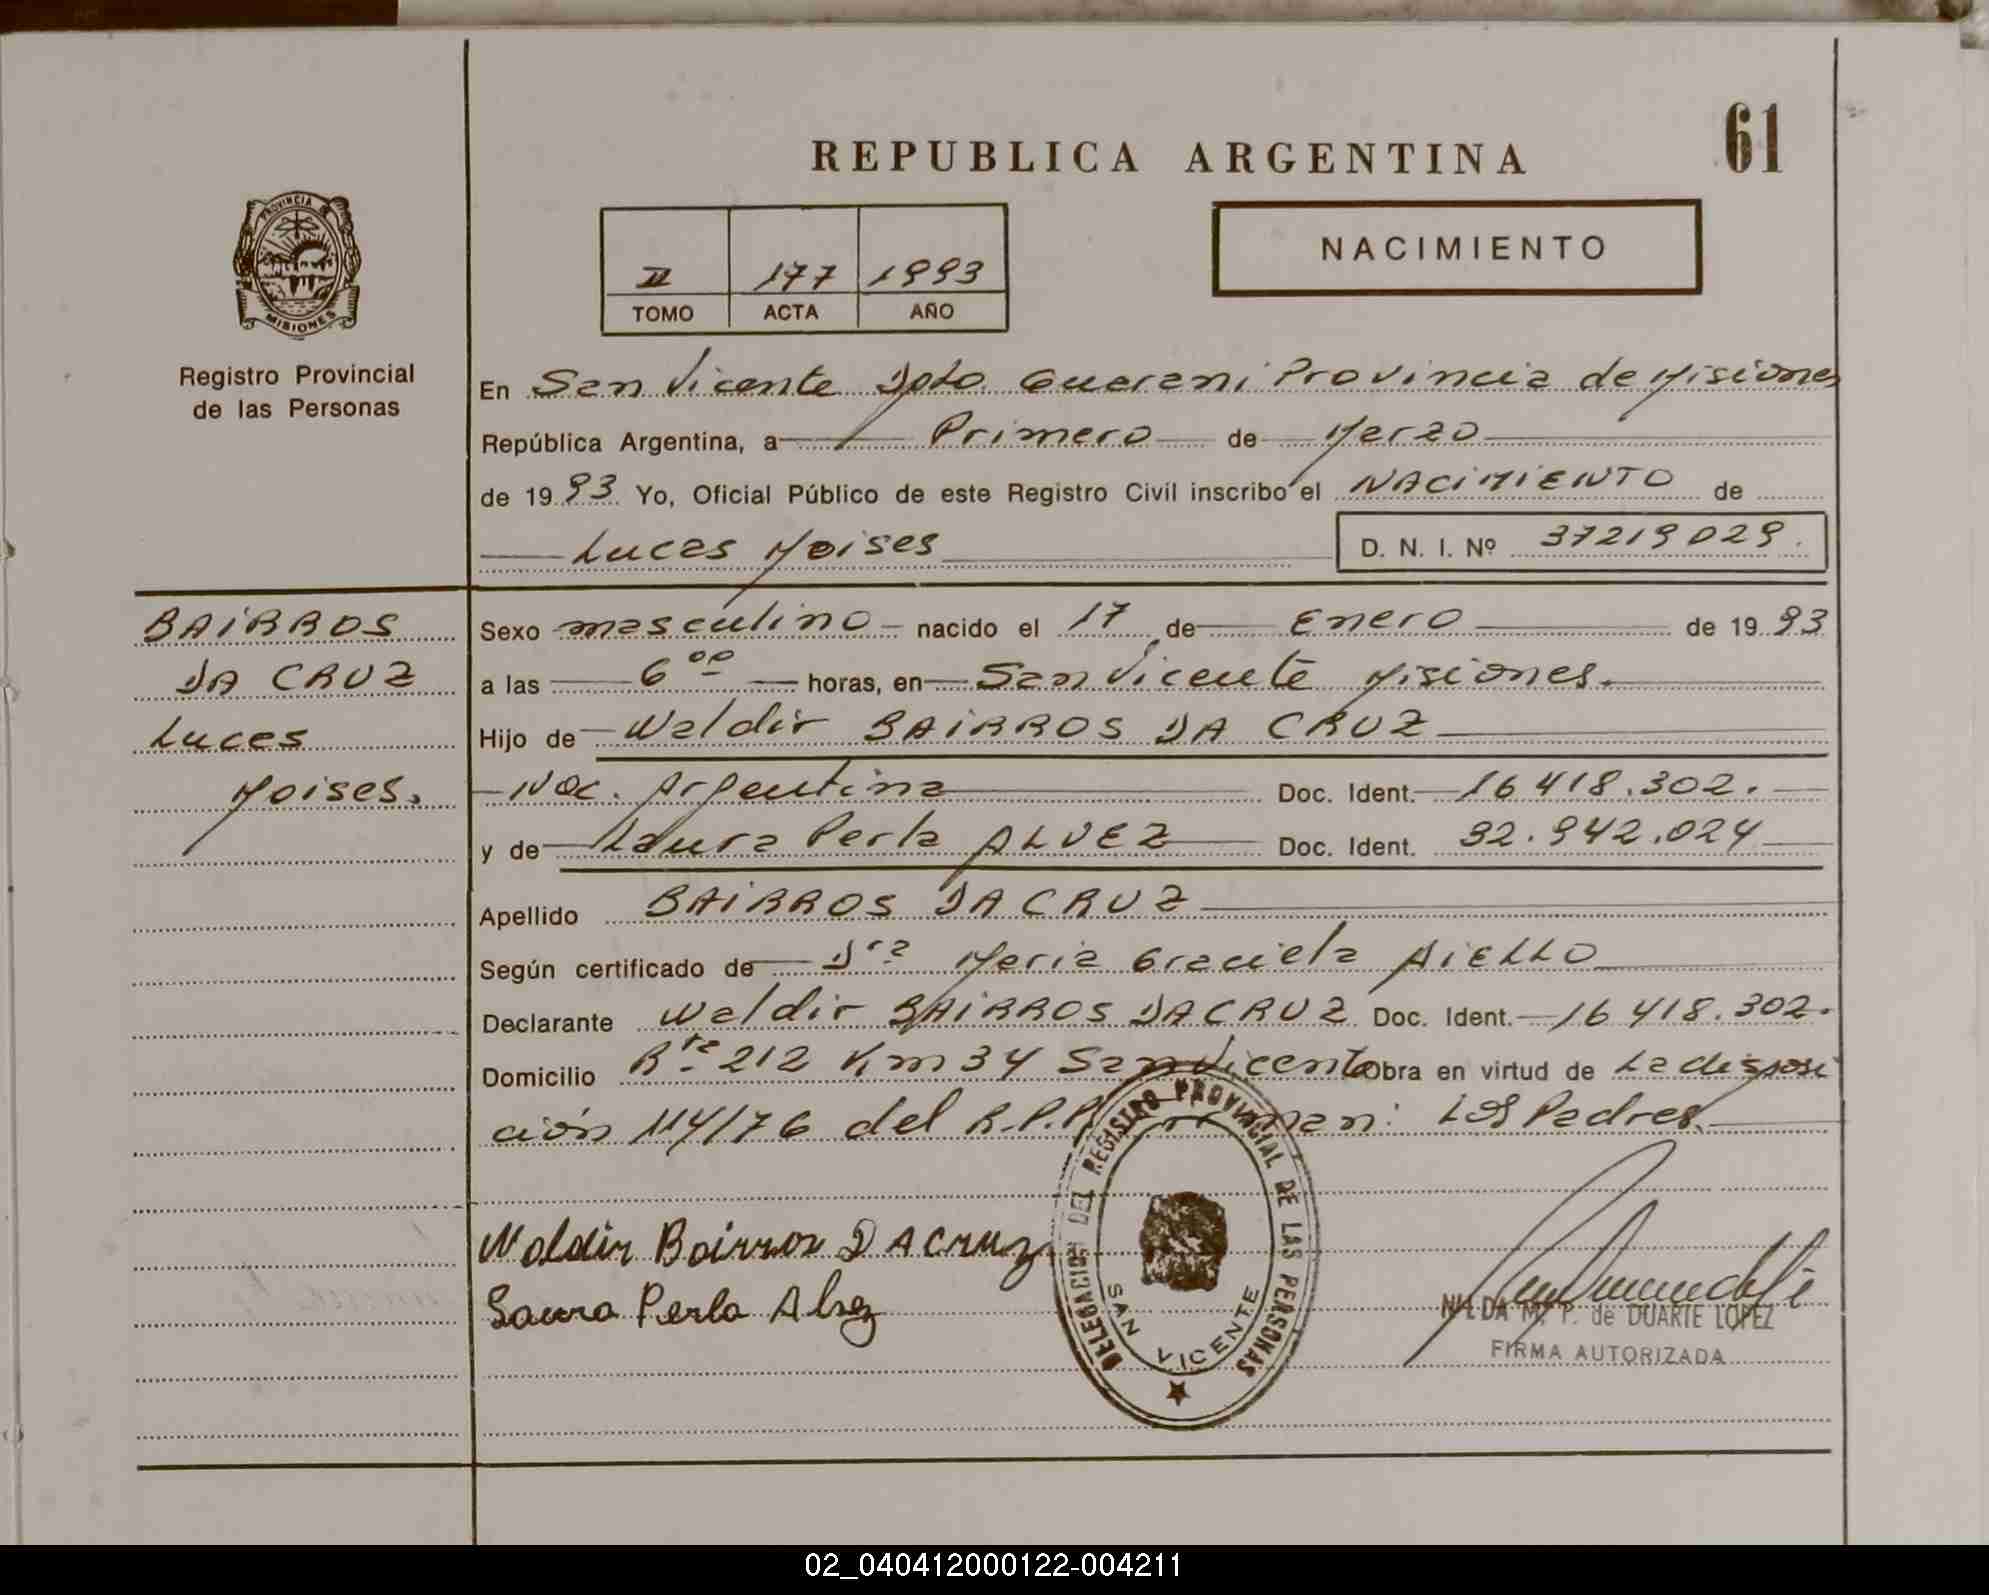 61
REPUBLICA ARGENTINA
PROVINCIA DE
MISIONES
Registro Provincial
de las Personas
NACIMIENTO
II 177 1993
TOMO ACTA AÑO
En San Vicente Dpto. Guarani Provincia de Misiones
República Argentina, a Primero de Marzo
de 1993 Yo, Oficial Público de este Registro Civil inscribo el NACIMIENTO de
Lucas Moises D. N. I. Nº 37219029.
BAiRROS
DA CRUZ
Lucas
Moises.
Sexo masculino nacido el 17 de Enero de 1993
a las 6 00 horas, en San Vicente Misiones.
Hijo de Waldir BAiRROS DA CRUZ
Nac. Argentina Doc. Ident. 16 418.302.
y de Laura Perla ALVEZ Doc. Ident. 92.942.024
Apellido BAiRROS DA CRUZ
Según certificado de Dra Maria Graciela AiELLO
Declarante Waldir BAiRROS DA CRUZ Doc. Ident. 16 418.302.
Domicilio Rta 212 Km 34 San Vicente Obra en virtud de La disposi
ción 114/76 del R.P.P. Los Padres.
Waldir Bairros DA cruz
Laura Perla Alvez
DELEGACION DEL REGISTRO PROVINCIAL DE LAS PERSONAS
SAN VICENTE
NILDA M. P. de DUARTE LOPEZ
FIRMA AUTORIZADA
02_040412000122-004211